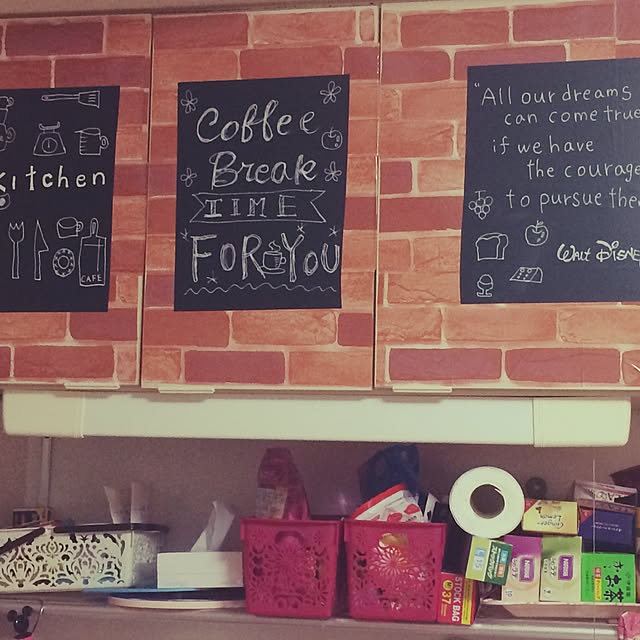 Kitchen
CAFE
Coffee
Break
TIME
FOR YOU
"All our dreams
can come true
if we have
the courage
to pursue the
Walt Disne
Ginger
Lemon
STOCK BAG
37